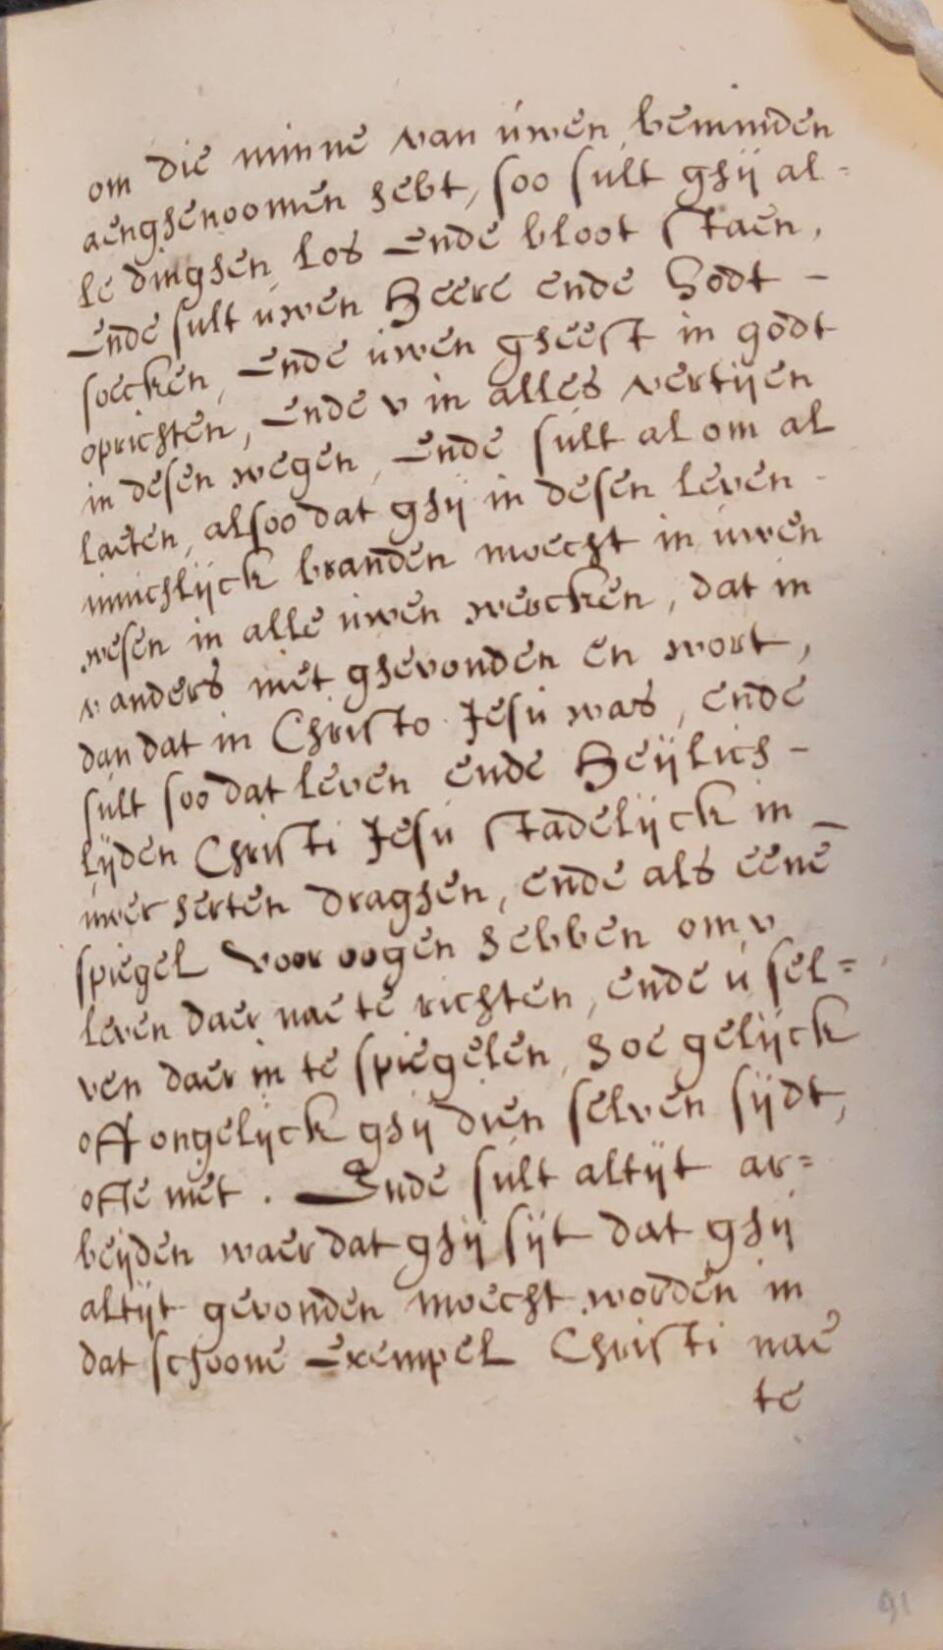 om die minne van uwen beminden
aenghenoomen hebt, soo sult ghij al=
le dinghen los Ende bloot staen,
Ende sult uwen Heere ende Godt -
soecken, Ende uwen gheest in godt
oprichten, Ende v in alles vertijen
in desen wegen, Ende sult al om al
laeten, alsoo dat ghij in desen leven -
innichlijck branden moecht in uwen
wesen in alle uwen wercken, dat in
v anders niet ghevonden en wort,
dan dat in Christo Jesu was, ende
sult soo dat leven ende Heijlich -
lijden Christi Jesu stadelijck in
uwer herten draghen, ende als eenē
spiegel voor oogen hebben om v
leven daer nae te richten, ende u sel=
ven daer in te spiegelen, hoe gelijck
off ongelijck ghij dien selven sijdt,
offe niet. Ende sult altijt ar=
beijden waer dat ghij sijt dat ghij
altijt gevonden moecht worden in
dat schoone Exempel Christi nae
te
91